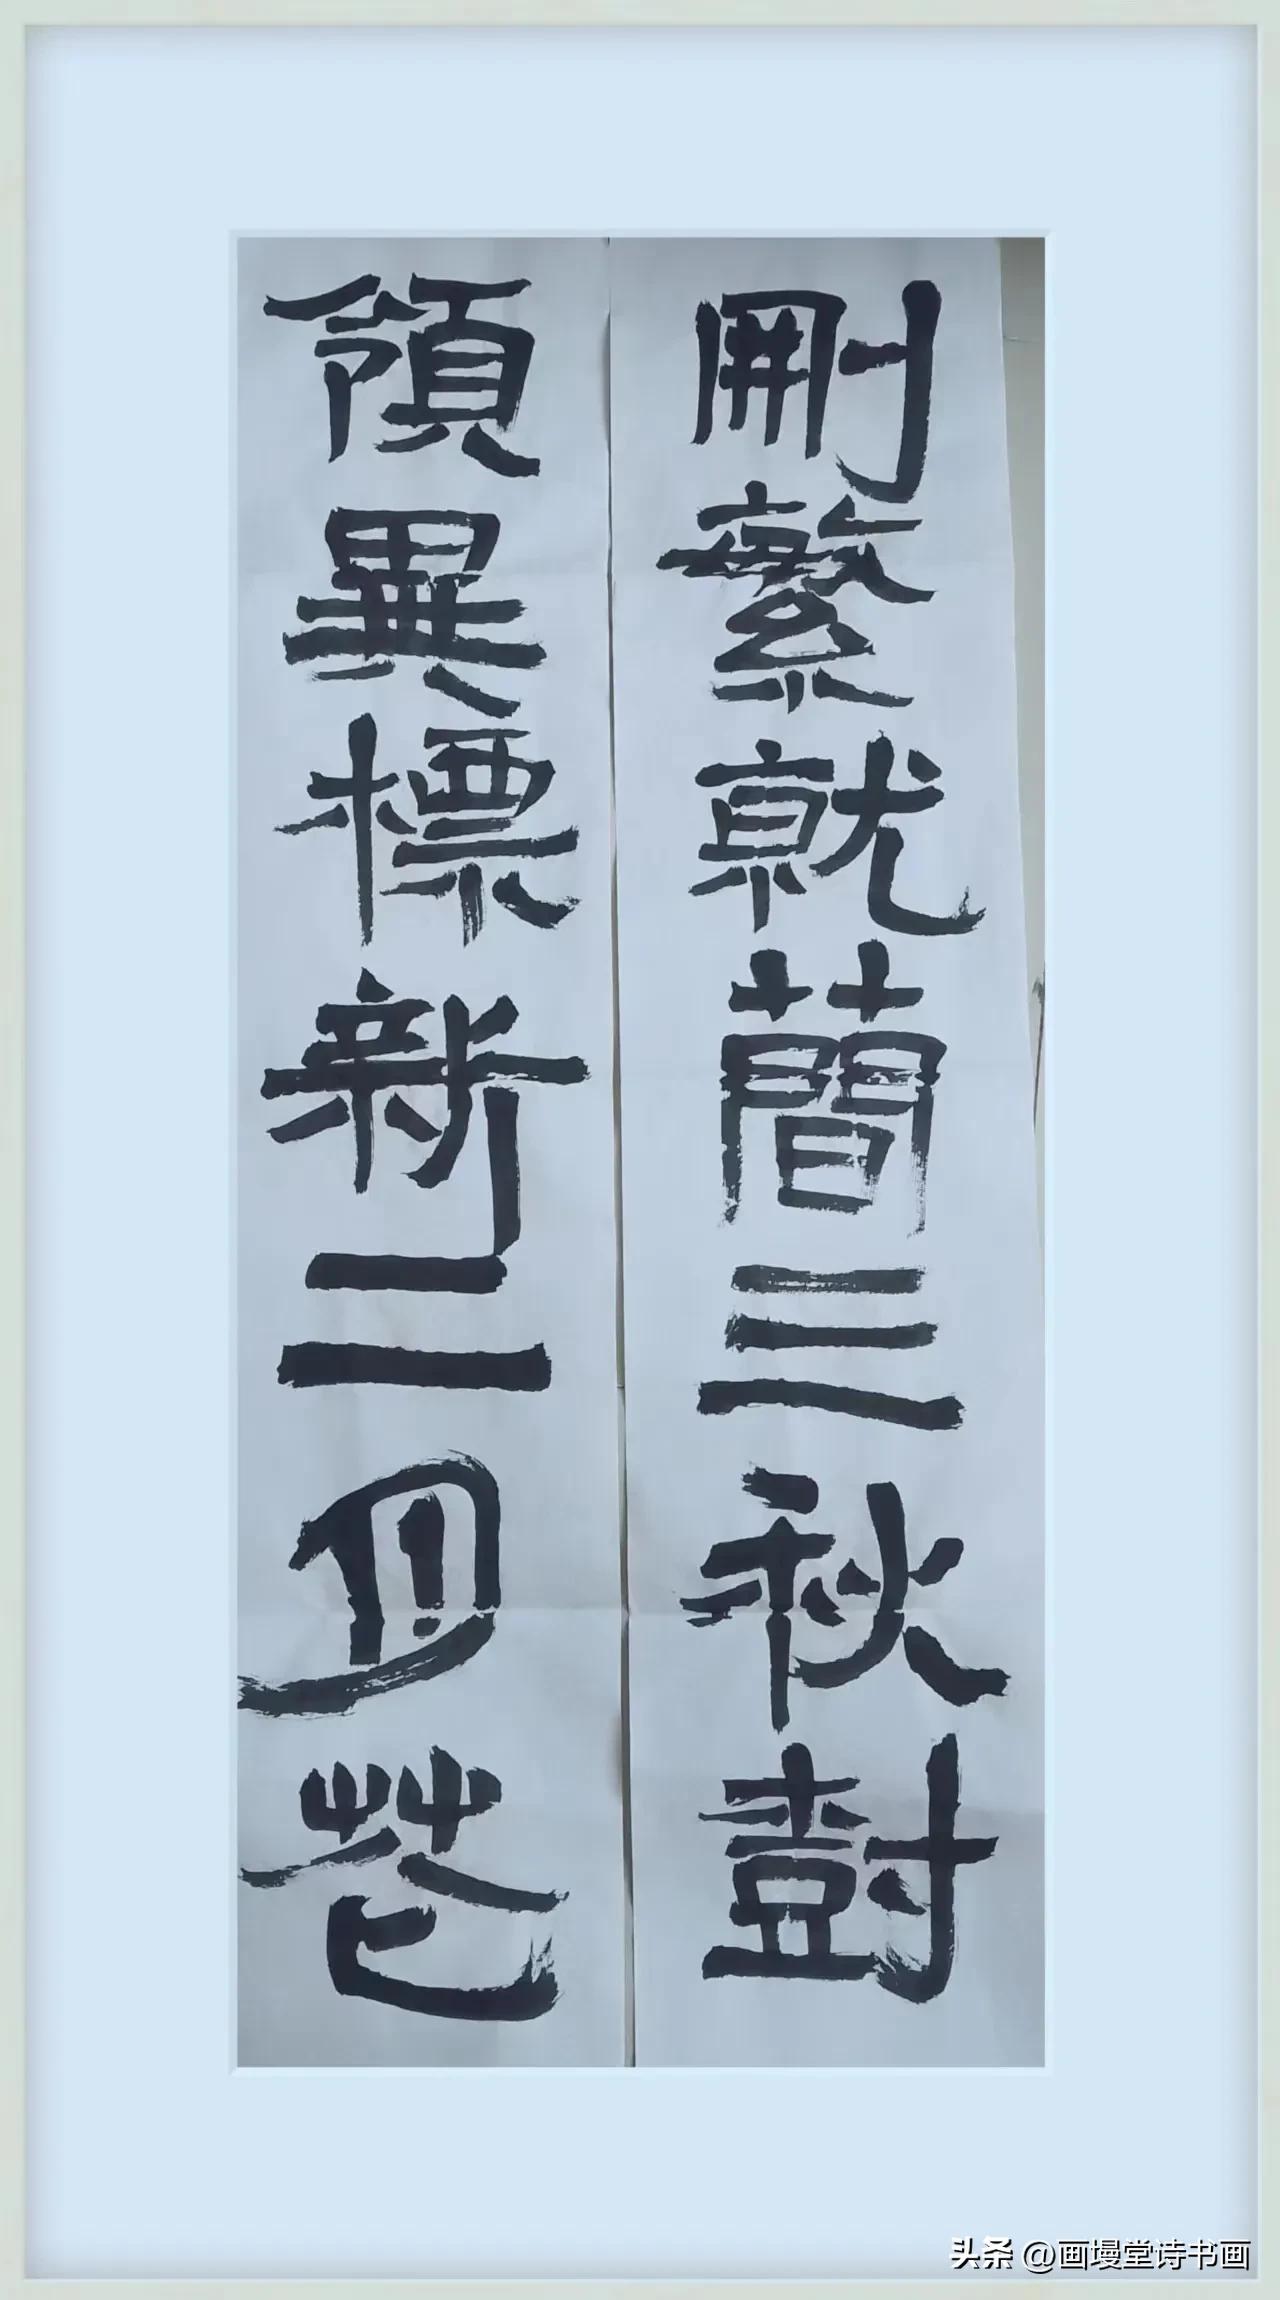 刪繁就蕳三秋尌
領異標新二月芲
头条 @画墁堂诗书画